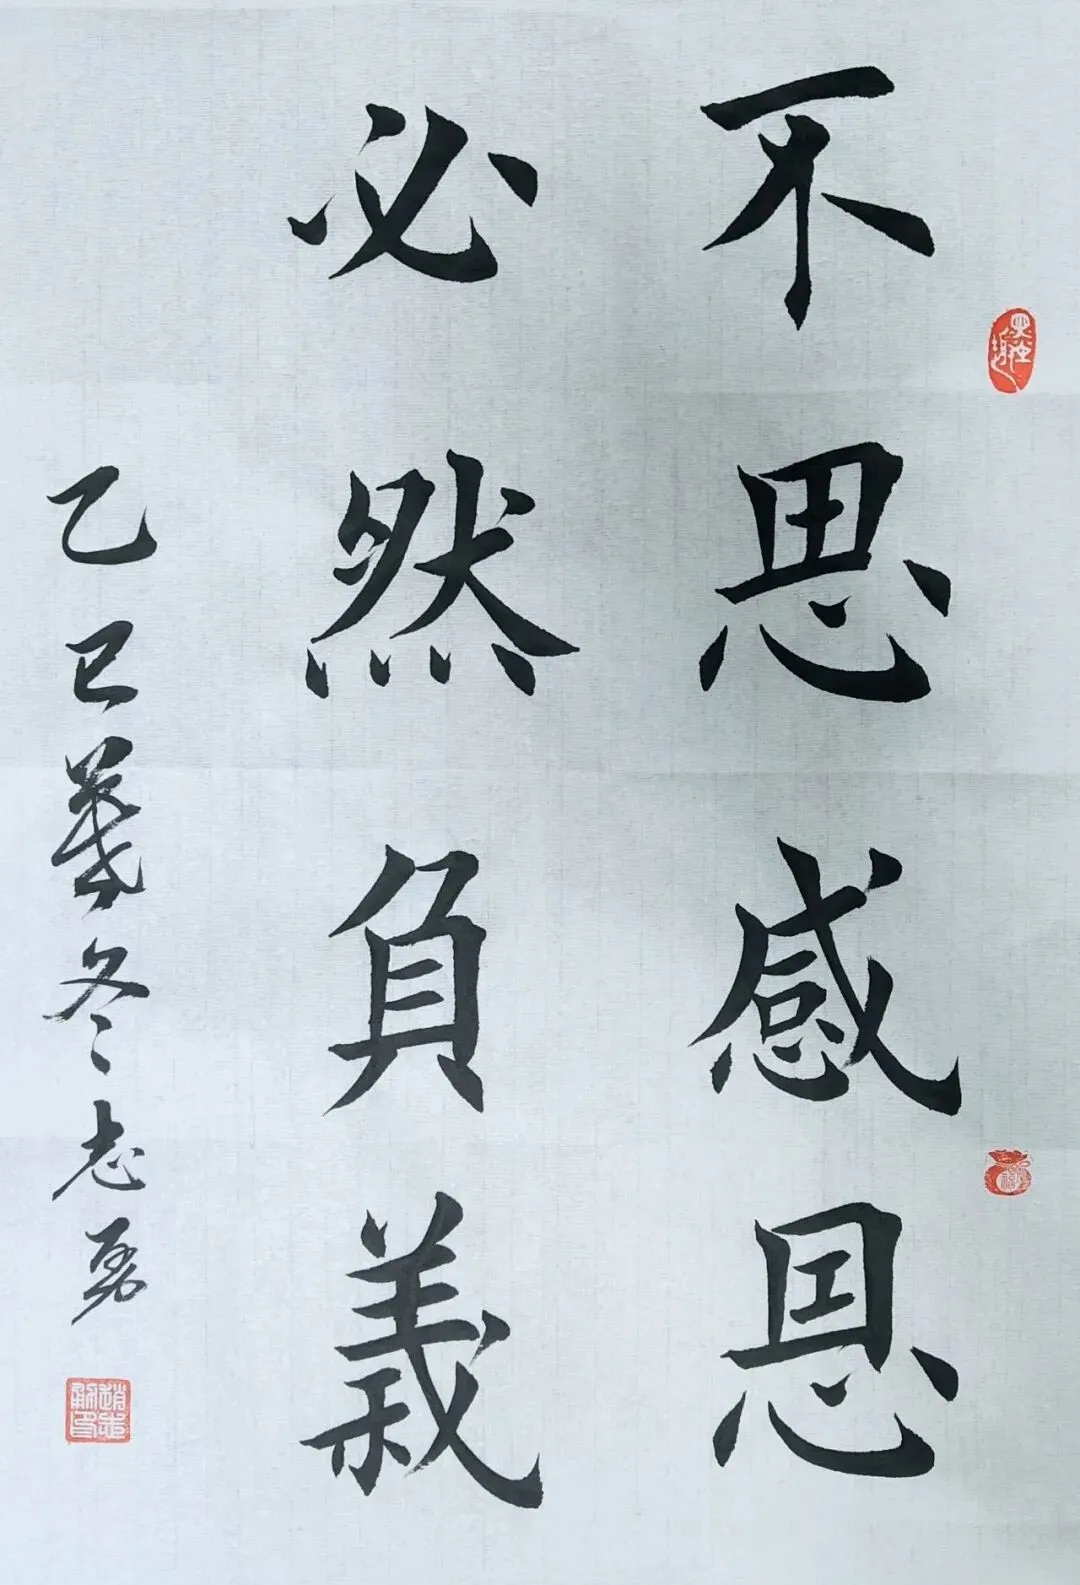 不思感恩
必然負義
乙巳羲冬志勇